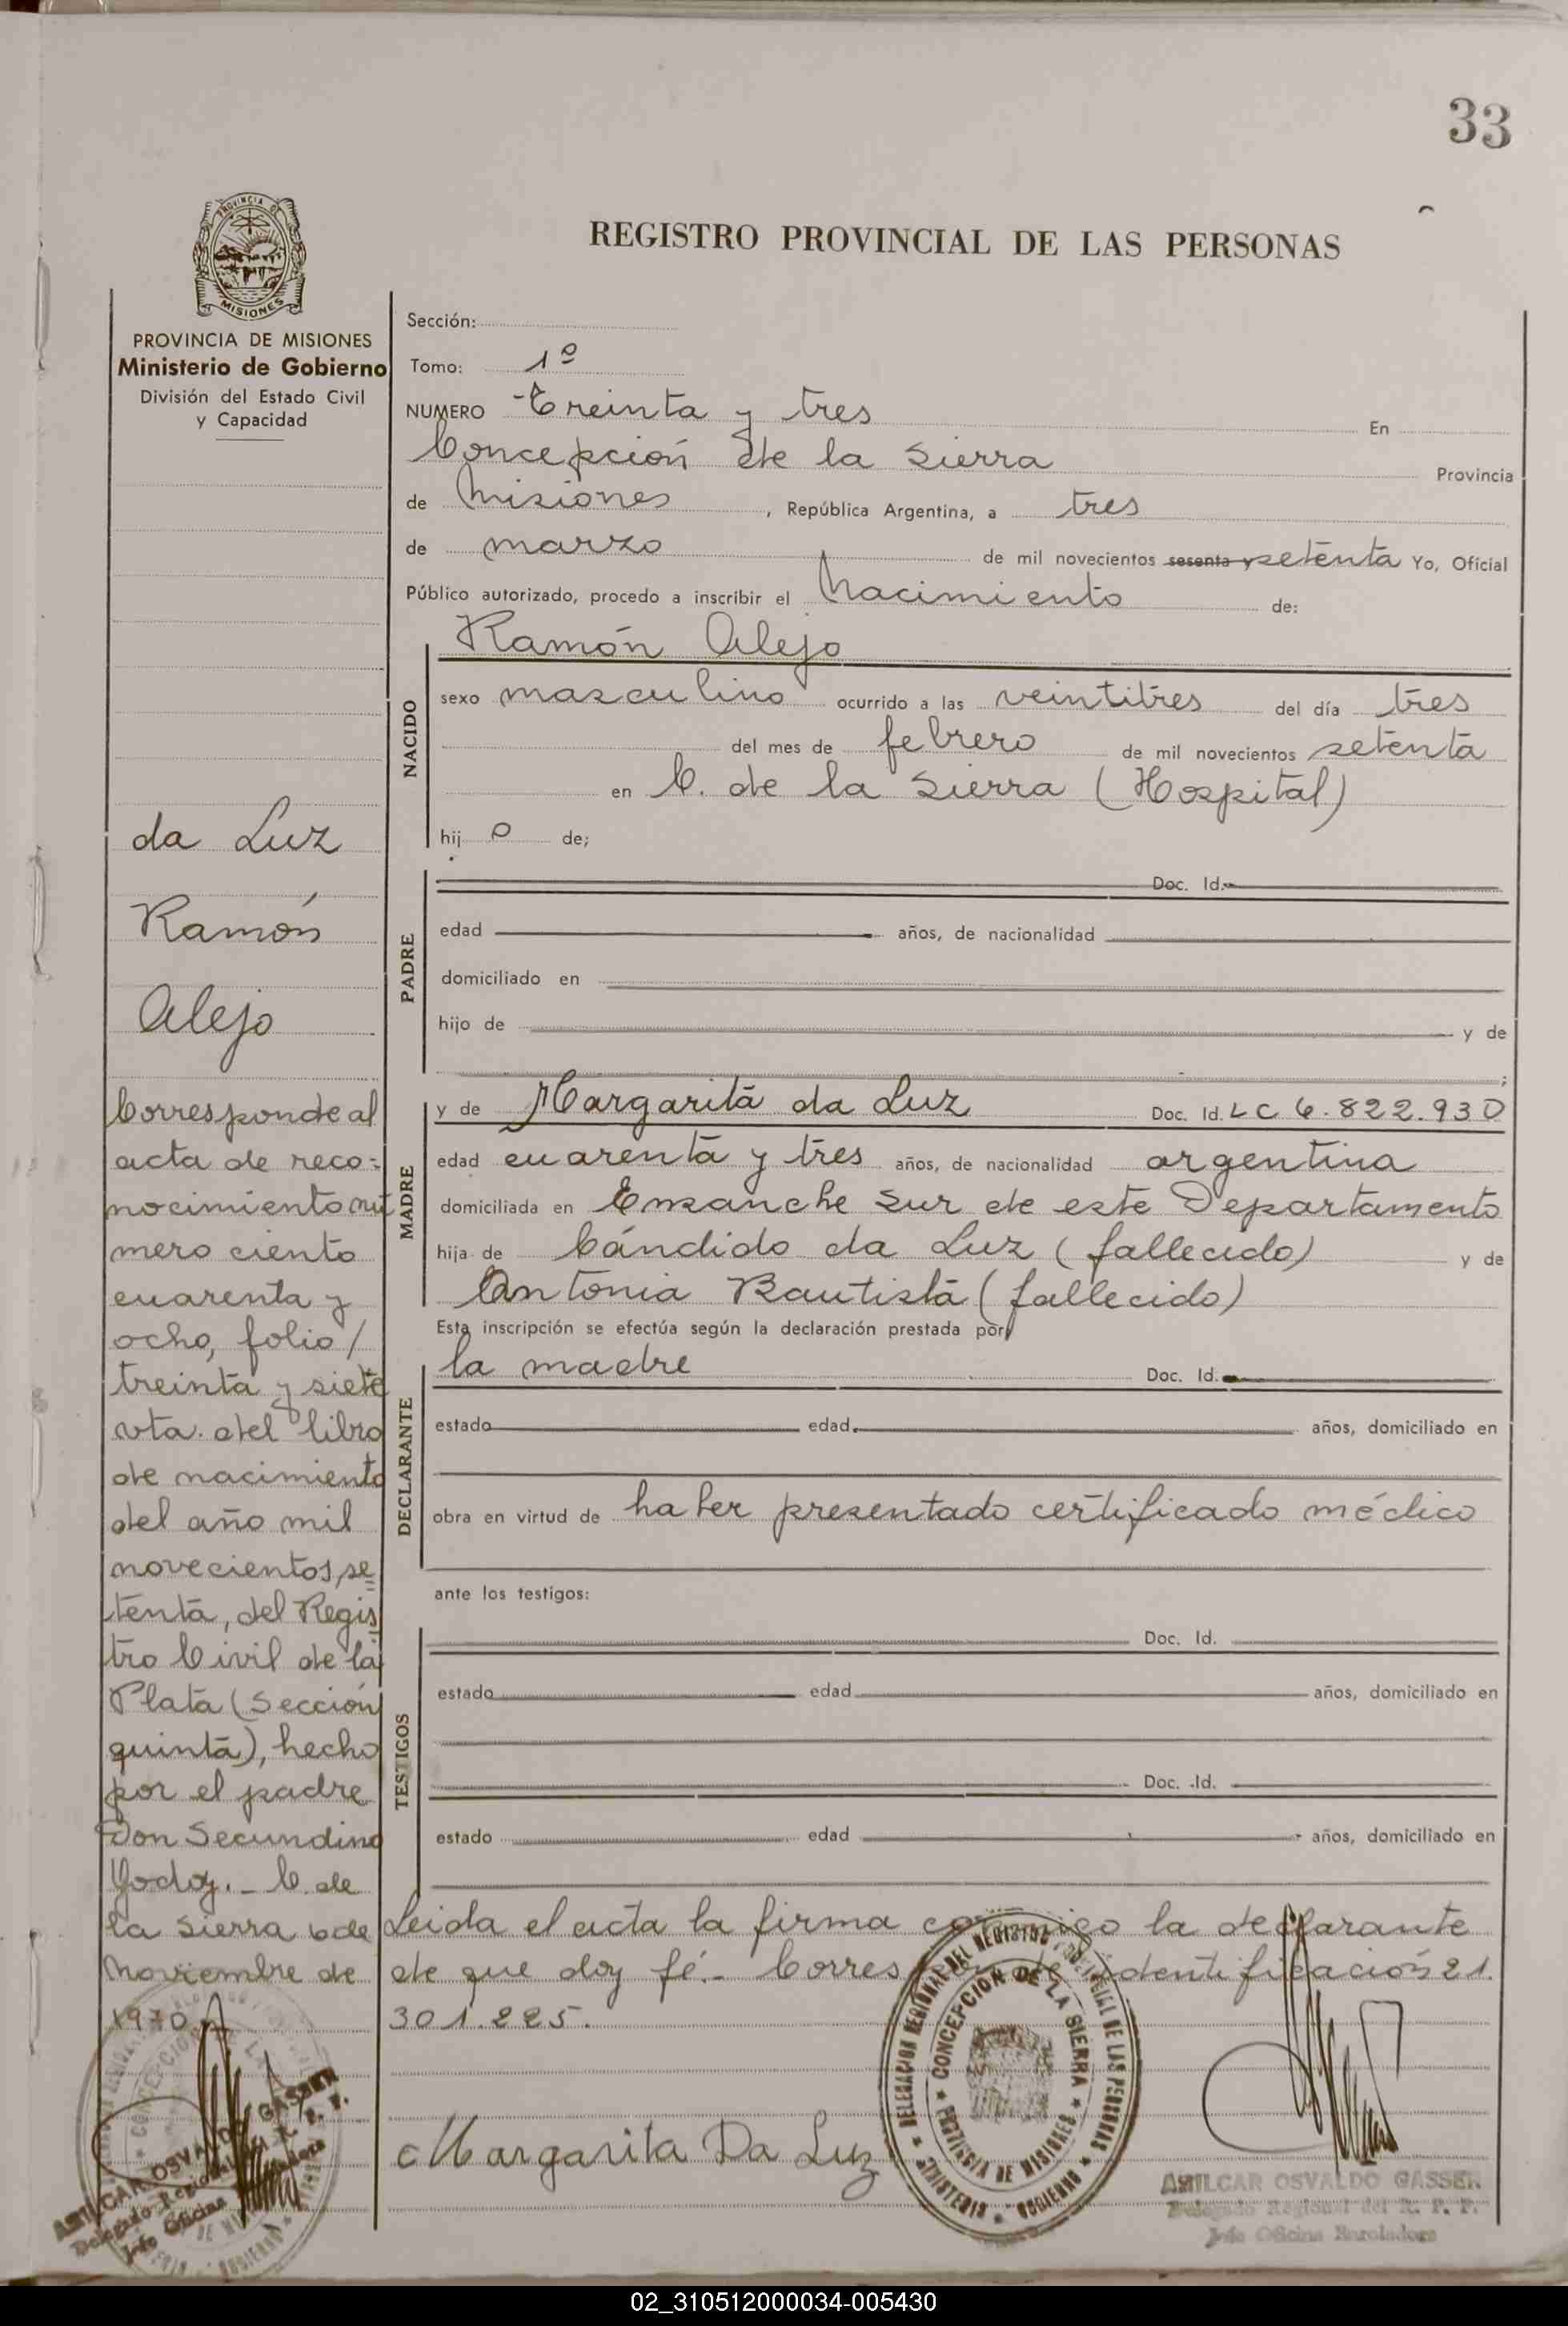 33
REGISTRO PROVINCIAL DE LAS PERSONAS
PROVINCIA DE
MISIONES
PROVINCIA DE MISIONES
Ministerio de Gobierno
División del Estado Civil
y Capacidad
Sección:
Tomo: 1º
NUMERO Treinta y tres En
Concepción de la Sierra Provincia
de Misiones, República Argentina, a tres
de marzo de mil novecientos sesenta y setenta Yo, Oficial
Público autorizado, procedo a inscribir el Nacimiento de:
NACIDO
Ramón Alejo
sexo masculino ocurrido a las veintitres del día tres
del mes de febrero de mil novecientos setenta
en C. de la Sierra (Hospital)
hij o de;
PADRE
Doc. Id.
edad años, de nacionalidad
domiciliado en
hijo de y de
;
MADRE
y de Margarita da Luz Doc. Id. LC 6.822.930
edad cuarenta y tres años, de nacionalidad argentina
domiciliada en Ensanche Sur de este Departamento
hija de Cándido da Luz (fallecido) y de
Antonia Bautista (fallecido)
Esta inscripción se efectúa según la declaración prestada por
DECLARANTE
la madre Doc. Id.
estado edad. años, domiciliado en
obra en virtud de haber presentado certificado médico
ante los testigos:
TESTIGOS
Doc. Id.
estado edad años, domiciliado en
Doc. Id.
estado edad años, domiciliado en
Leida el acta la firma conmigo la declarante
de que doy fé.- Corresponde identificación 21.
301.225.
Margarita Da Luz
DELEGACION REGIONAL DEL REGISTRO PROVINCIAL DE LAS PERSONAS
CONCEPCION DE LA SIERRA
PROVINCIA DE MISIONES
MINISTERIO GOBIERNO
AMILCAR OSVALDO GASSER
Delegado Regional del R. P. P.
Jefe Oficina Enroladora
da Luz
Ramón
Alejo
Corresponde al
acta de reco-
nocimiento nú
mero ciento
cuarenta y
ocho, folio /
treinta y siete
vta. del libro
de nacimiento
del año mil
novecientos se
tenta, del Regis
tro Civil de la
Plata (Sección
quinta), hecho
por el padre
Don Secundino
Godoy.- C. de
la Sierra 6 de
Noviembre de
1970
CONCEPCION
AMILCAR OSVALDO GASSER
Delegado Regional del R. P. P.
Jefe Oficina Enroladora
02_310512000034-005430